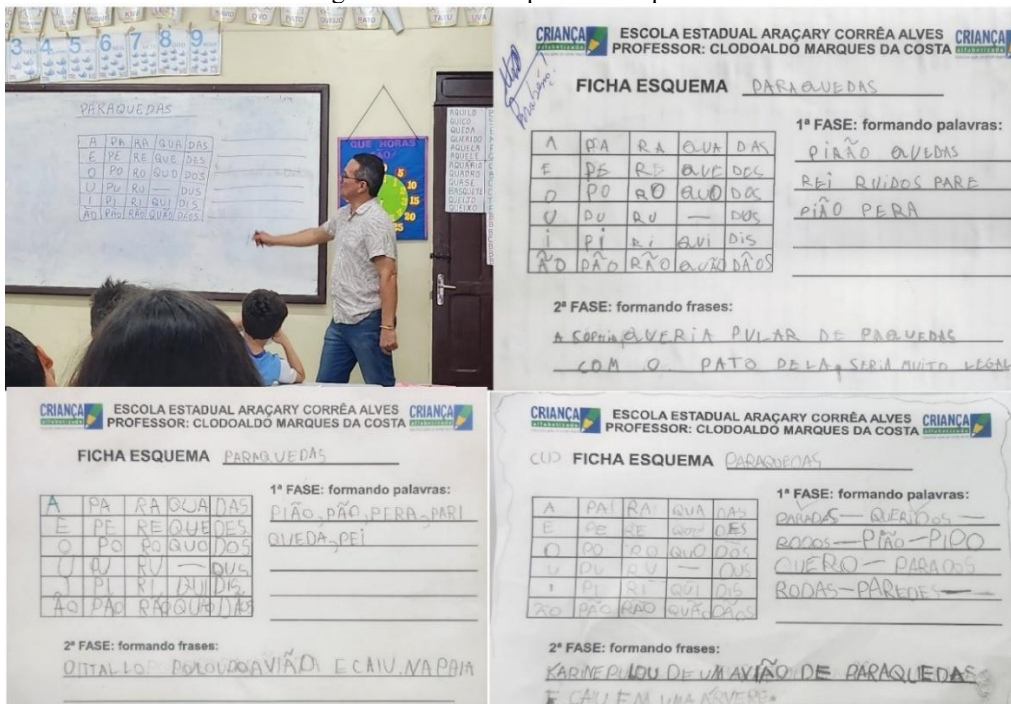 OVO
PATO
QUEIJO
RATO
TATU
UVA
3 4 5 6 7 8 9
PARAQUEDAS
A PA RA QUA DAS
E PE RE QUE DES
O PO RO QUO DOS
U PU RU — DUS
I PI RI QUI DIS
ÃO PÃO RÃO QUÃO DÃOS
QUE HORAS
SÃO
5
10
15
20
25
AQUILO
QUICO
QUEDA
QUERIDO
AQUELA
AQUELE
AQUÁRIO
QUADRO
QUASE
BASQUETE
QUEIJO
QUEIXO
CRIANÇA alfabetizada
ESCOLA ESTADUAL ARAÇARY CORRÊA ALVES
PROFESSOR: CLODOALDO MARQUES DA COSTA
CRIANÇA alfabetizada
Parabéns!
FICHA ESQUEMA PARAQUEDAS
A PA RA QUA DAS
E PE RE QUE DES
O PO RO QUO DOS
U PU RU — DUS
i Pi Ri QUi Dis
ÃO PÃO RÃO QUÃO DÃOS
1ª FASE: formando palavras:
PiRÃO QUEDAS
REi RUiDOS PARE
PiÃO PERA
2ª FASE: formando frases:
A SOPHiA QUERiA PULAR DE PAQUEDAS
COM O PATO DELA, SERiA MUiTO LEGAL
CRIANÇA alfabetizada
ESCOLA ESTADUAL ARAÇARY CORRÊA ALVES
PROFESSOR: CLODOALDO MARQUES DA COSTA
CRIANÇA alfabetizada
FICHA ESQUEMA PARAQUEDAS
A PA RA QUA DAS
E PE RE QUE DES
O PO RO QUO DOS
U PU RU — DUS
I PI RI QUI DIS
ÃO PÃO RÃO QUÃO DÃOS
1ª FASE: formando palavras:
PIÃO, PÃO, PERA, PARI
QUEDA, PEI
2ª FASE: formando frases:
AVIÃO E CAIU. NA PAIA
CRIANÇA alfabetizada
ESCOLA ESTADUAL ARAÇARY CORRÊA ALVES
PROFESSOR: CLODOALDO MARQUES DA COSTA
CRIANÇA alfabetizada
FICHA ESQUEMA PARAQUEDAS
A PA RA QUA DAS
E PE RE QUE DES
O PO RO QUO DOS
U PU RU — DUS
I PI RI QUI DIS
ÃO PÃO RÃO QUÃO DÃOS
1ª FASE: formando palavras:
PARADAS — QUERIDOS —
RODOS — PIÃO — PIPO
QUERO — PARADOS
RODAS — PAREDES —
2ª FASE: formando frases:
KARINE PULOU DE UM AVIÃO DE PARAQUEDAS
E CAIU EM UMA ARVERE.